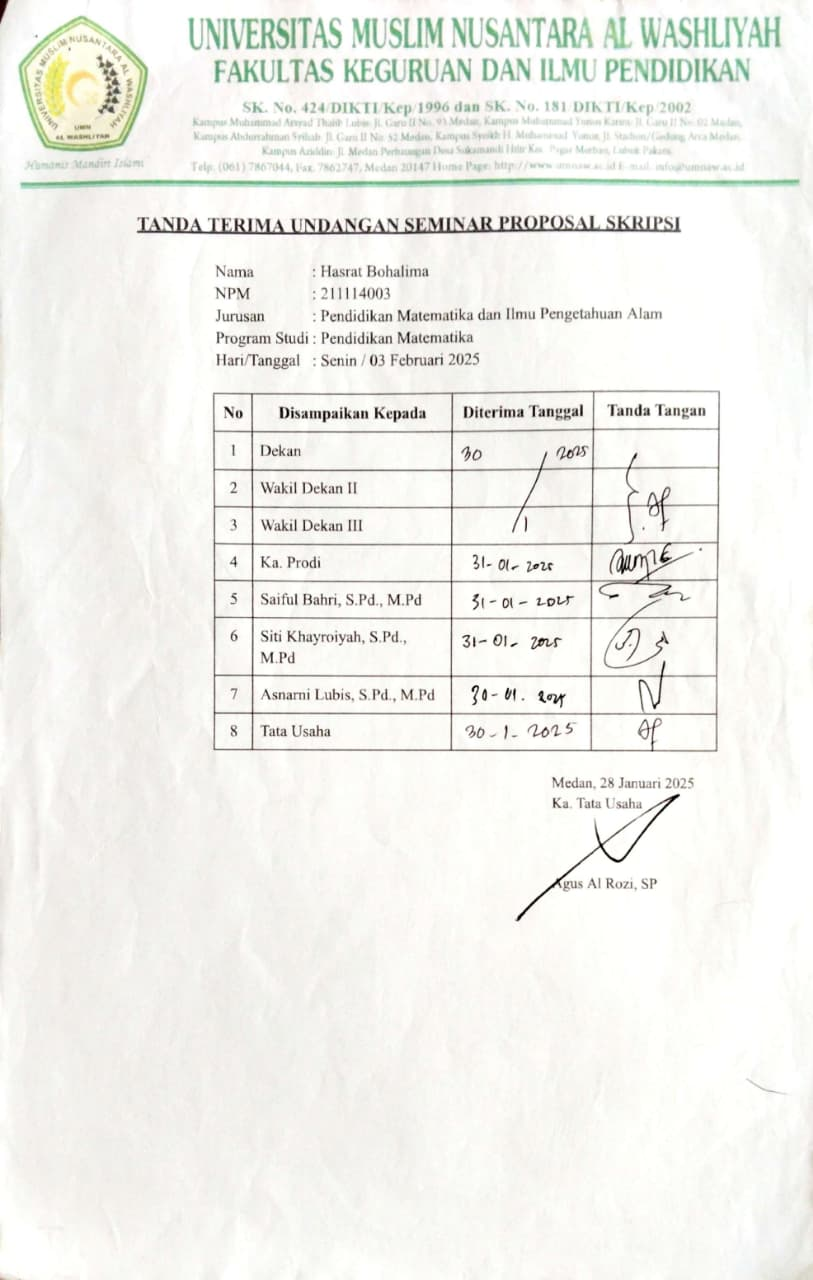 UNIVERSITAS MUSLIM NUSANTARA AL WASHLIYAH
UMN
AL WASHLIYAH
Humanis Mandiri Islami
UNIVERSITAS MUSLIM NUSANTARA AL WASHLIYAH
FAKULTAS KEGURUAN DAN ILMU PENDIDIKAN
SK. No. 424/DIKTI/Kep/1996 dan SK. No. 181/DIKTI/Kep/2002
Kampus Muhammad Arsyad Thalib Lubis: Jl. Garu II No. 93 Medan, Kampus Muhammad Yunus Karim: Jl. Garu II No. 02 Medan,
Kampus Abdurrahman Syihab: Jl. Garu II No. 52 Medan, Kampus Syeikh H. Muhammad Yunus, Jl. Stadion/Gedung Arca Medan,
Kampus Aziddin: Jl. Medan Perbaungan Desa Sukamandi Hilir Kec. Pagar Merbau, Lubuk Pakam,
Telp. (061) 7867044, Fax. 7862747, Medan 20147 Home Page: http://www.umnaw.ac.id E-mail: info@umnaw.ac.id
TANDA TERIMA UNDANGAN SEMINAR PROPOSAL SKRIPSI
Nama : Hasrat Bohalima
NPM : 211114003
Jurusan : Pendidikan Matematika dan Ilmu Pengetahuan Alam
Program Studi : Pendidikan Matematika
Hari/Tanggal : Senin / 03 Februari 2025
No Disampaikan Kepada Diterima Tanggal Tanda Tangan
1 Dekan 30 / 2025
2 Wakil Dekan II
3 Wakil Dekan III / 1
4 Ka. Prodi 31-01-2025
5 Saiful Bahri, S.Pd., M.Pd 31-01-2025
6 Siti Khayroiyah, S.Pd., 31-01-2025
M.Pd
7 Asnarni Lubis, S.Pd., M.Pd 30-01.2025
8 Tata Usaha 30-1-2025
Medan, 28 Januari 2025
Ka. Tata Usaha
Agus Al Rozi, SP